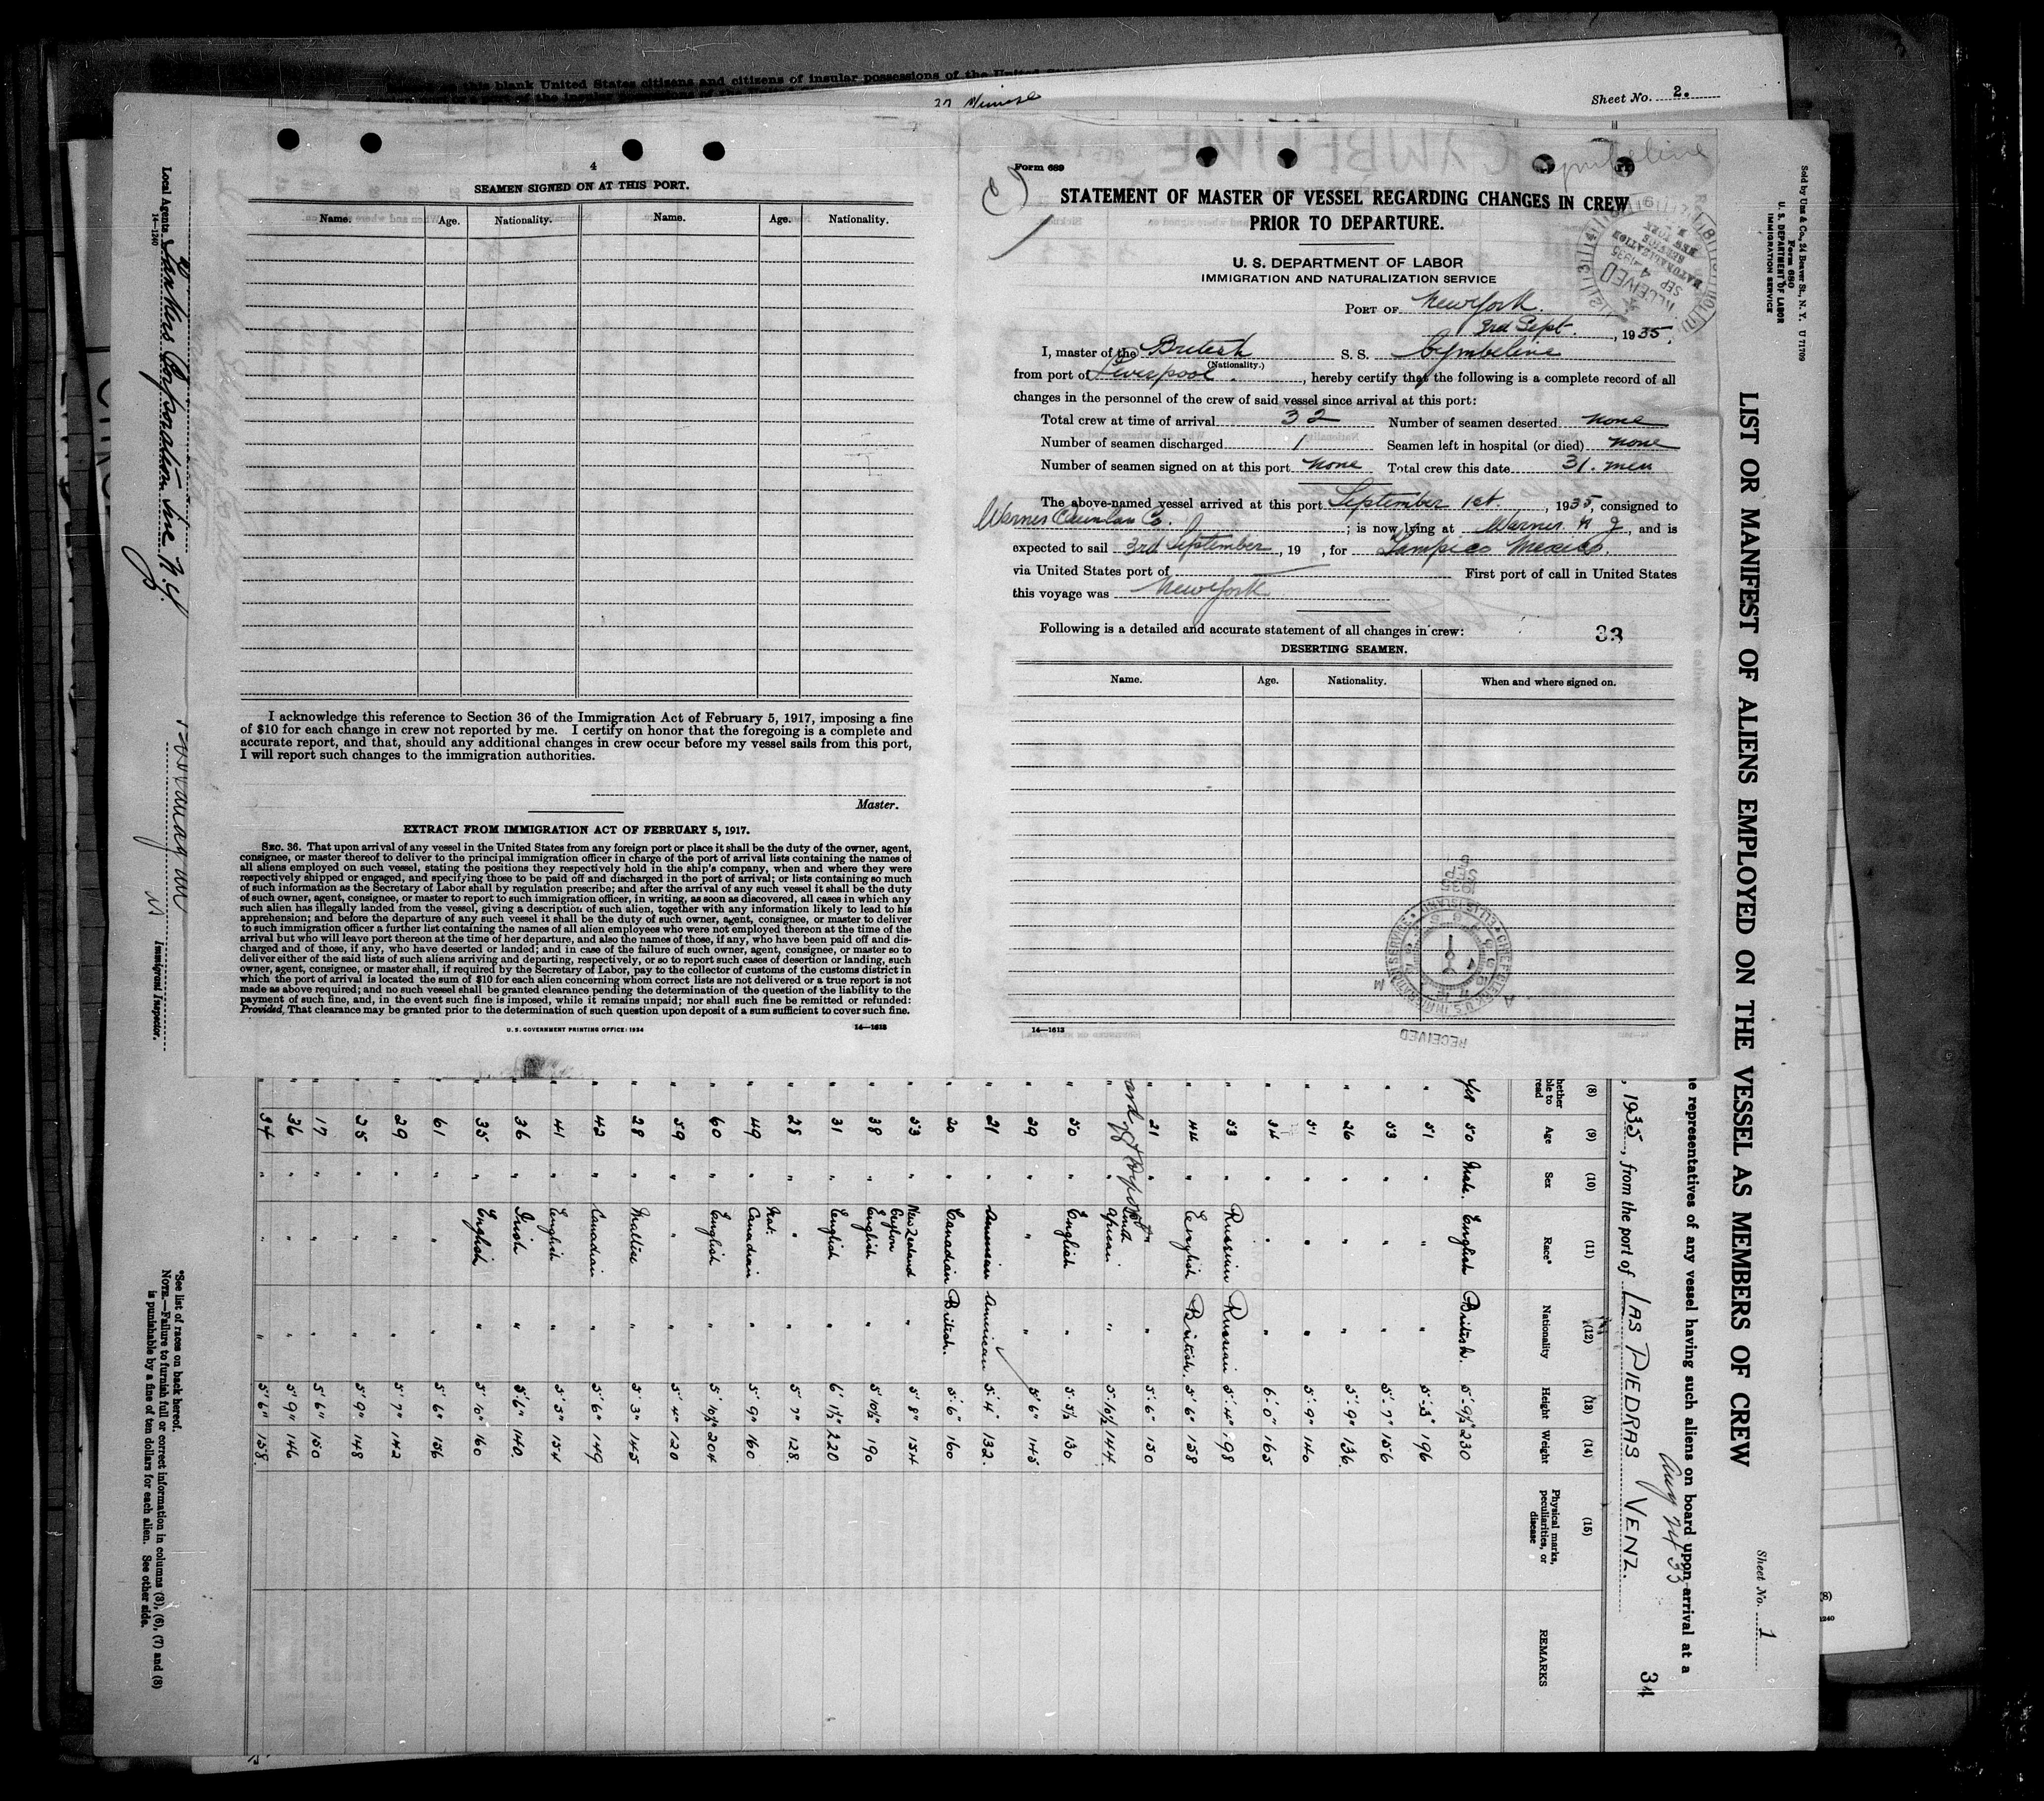 Sheet No. 2.
4
SEAMEN SIGNED ON AT THIS PORT.
Name. Age. Nationality. Name. Age. Nationality.
I acknowledge this reference to Section 36 of the Immigration Act of February 5, 1917, imposing a fine
of $10 for each change in crew not reported by me. I certify on honor that the foregoing is a complete and
accurate report, and that, should any additional changes in crew occur before my vessel sails from this port,
I will report such changes to the immigration authorities.
Master.
EXTRACT FROM IMMIGRATION ACT OF FEBRUARY 5, 1917.
SEC. 36. That upon arrival of any vessel in the United States from any foreign port or place it shall be the duty of the owner, agent,
consignee, or master thereof to deliver to the principal immigration officer in charge of the port of arrival lists containing the names of
all aliens employed on such vessel, stating the positions they respectively hold in the ship's company, when and where they were
respectively shipped or engaged, and specifying those to be paid off and discharged in the port of arrival; or lists containing so much
of such information as the Secretary of Labor shall by regulation prescribe; and after the arrival of any such vessel it shall be the duty
of such owner, agent, consignee, or master to report to such immigration officer, in writing, as soon as discovered, all cases in which any
such alien has illegally landed from the vessel, giving a description of such alien, together with any information likely to lead to his
apprehension; and before the departure of any such vessel it shall be the duty of such owner, agent, consignee, or master to deliver
to such immigration officer a further list containing the names of all alien employees who were not employed thereon at the time of the
arrival but who will leave port thereon at the time of her departure, and also the names of those, if any, who have been paid off and dis-
charged and of those, if any, who have deserted or landed; and in case of the failure of such owner, agent, consignee, or master so to
deliver either of the said lists of such aliens arriving and departing, respectively, or so to report such cases of desertion or landing, such
owner, agent, consignee, or master shall, if required by the Secretary of Labor, pay to the collector of customs of the customs district in
which the port of arrival is located the sum of $10 for each alien concerning whom correct lists are not delivered or a true report is not
made as above required; and no such vessel shall be granted clearance pending the determination of the question of the liability to the
payment of such fine, and, in the event such fine is imposed, while it remains unpaid; nor shall such fine be remitted or refunded:
Provided, That clearance may be granted prior to the determination of such question upon deposit of a sum sufficient to cover such fine.
U. S. GOVERNMENT PRINTING OFFICE: 1934 14—1613
Form 689
STATEMENT OF MASTER OF VESSEL REGARDING CHANGES IN CREW
PRIOR TO DEPARTURE.
U. S. DEPARTMENT OF LABOR
IMMIGRATION AND NATURALIZATION SERVICE
PORT OF New York.
3rd Sept., 1935.
I, master of the British S. S. Cymbeline
(Nationality.)
from port of Liverpool, hereby certify that the following is a complete record of all
changes in the personnel of the crew of said vessel since arrival at this port:
Total crew at time of arrival 32 Number of seamen deserted none
Number of seamen discharged 1 Seamen left in hospital (or died) none
Number of seamen signed on at this port none Total crew this date 31. men
The above-named vessel arrived at this port September 1st., 1935, consigned to
Warner Quinlan Co.; is now lying at Warner. N J, and is
expected to sail 3rd September, 19 , for Tampico Mexico.
via United States port of First port of call in United States
this voyage was New York
Following is a detailed and accurate statement of all changes in crew: 33
DESERTING SEAMEN.
Name. Age. Nationality. When and where signed on.
14—1613
RECEIVED
SEP 5 1935
Sold by Unz & Co., 24 Beaver St., N. Y. U 71709
Form 680
U. S. DEPARTMENT OF LABOR
IMMIGRATION SERVICE
LIST OR MANIFEST OF ALIENS EMPLOYED ON THE VESSEL AS MEMBERS OF CREW
Sheet No. 1
representatives of any vessel having such aliens on board upon arrival at a
Aug 24 33
, 1935, from the port of LAS PIEDRAS VENZ.
34
(8) (9) (10) (11) (12) (13) (14) (15)
Age Sex Race* Nationality Height Weight Physical marks, peculiarities, or disease REMARKS
Yes 50 Male. English British. 5'-9½" 230
" 51 " " " 5'-3" 196
" 53 " " " 5'-7" 156
" 26 " " " 5'-9" 136
" 51 " " " 5'-9" 140
" 34 " " " 6'-0" 165
" 53 " Russian Russian 5'-4" 198
" 44 " English British. 5'6" 158
" 21 " " " 5'-6" 150
" South African " 5'-10½ 144
" 50 " English " 5'-5½ 130
" 29 " " " 5'6" 145
" 21 " American American 5'-4" 132.
" 20 " Canadian British. 5'-6" 160
" 53 " New Zealand " 5'8" 154
" 38 " Ceylon English " 5'10½" 190
" 31 " English " 6'1½" 220
" 28 " " " 5'7" 128
" 49 " Nat. Canadian " 5'-9" 160
" 60 " English " 5'10½" 204
" 59 " " " 5'-4" 120
" 28 " Maltese " 5'3" 145
" 42 " Canadian " 5'6" 149
" 41 " English " 5'5" 154
" 36 " Irish " 5'-6" 140
" 35 " English " 5'10" 160
" 61 " " " 5'6" 156
" 29 " " " 5'7" 142
" 25 " " " 5'9" 148
" 17 " " " 5'6" 150
" 36 " " " 5'9" 146
" 34 " " " 5'6" 158
Local Agents Tankers Corporation Line N.Y.
14—1240
Immigrant Inspector.
*See list of races on back hereof.
NOTE.—Failure to furnish full or correct information in columns (3), (6), (7) and (8)
is punishable by a fine of ten dollars for each alien. See other side.